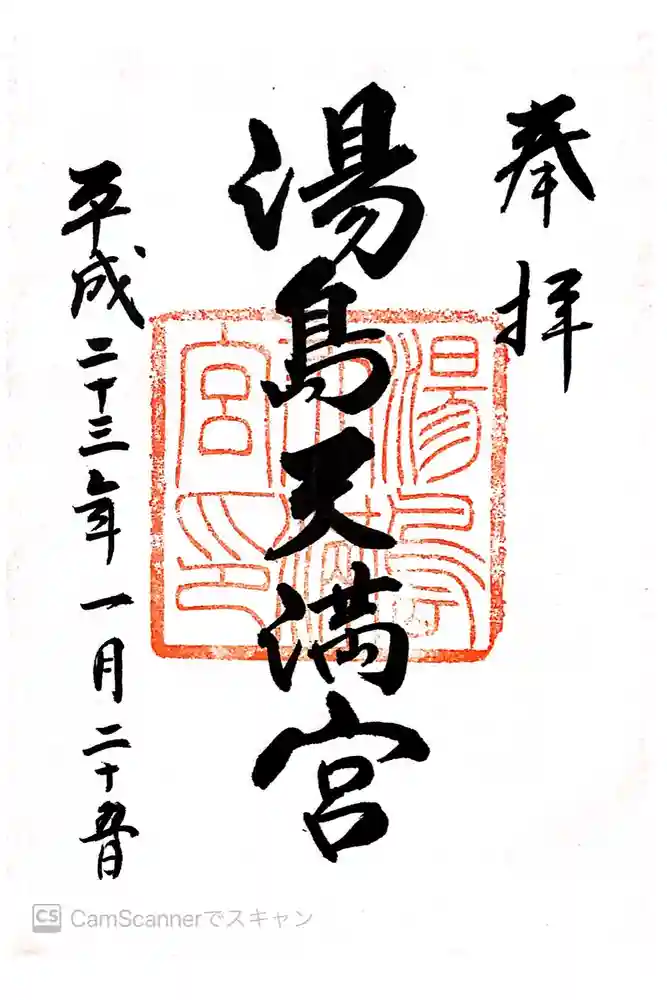 奉拝
湯島天満宮
湯島天満宮印
平成二十三年一月二十五日
CS CamScannerでスキャン